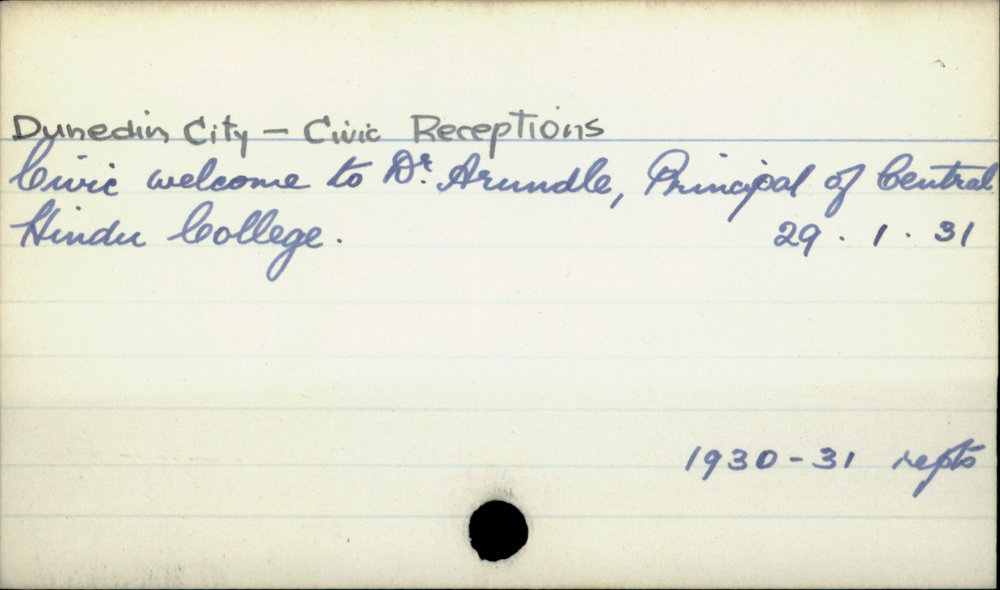 Dunedin City - Civic Receptions
Civic welcome to Dr. Arundle, Principal of Central
Hindu College. 29 . 1 . 31
1930-31 repts